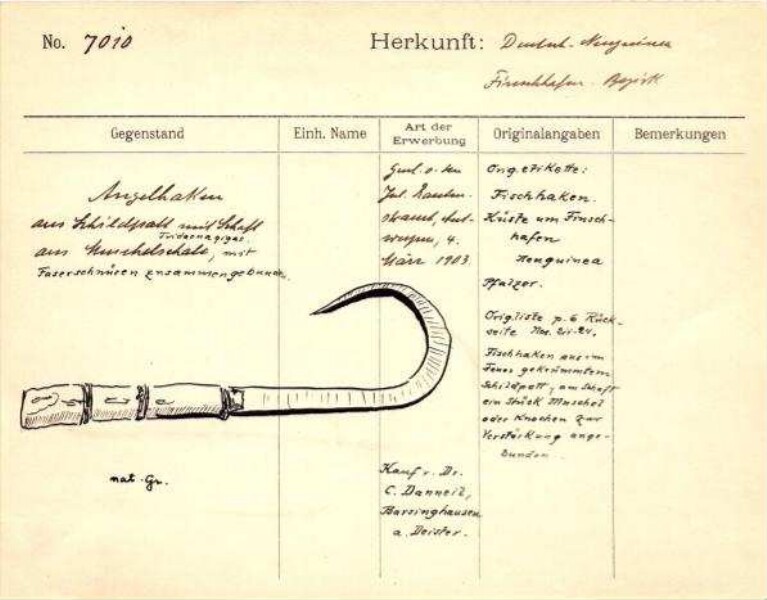 No. 7010
Herkunft: Deutsch-Neuguinea
Finschhafen-Bezirk
Gegenstand
Einh. Name
Art der
Erwerbung
Originalangaben
Bemerkungen
Angelhaken
aus Schildpatt mit Schaft
Tridacna gigas
aus Muschelschale, mit
Faserschnüren zusammengebunden.
Jul.
werpen, 4.
März 1903.
Kauf v. Dr.
C. Danneil,
Barsinghausen
a. Deister.
Orig. etikette:
Fischhaken.
Küste um Finsch-
hafen
Neuguinea
Pfalzer.
Orig. liste p. 6 Rück-
seite Nos.
Fischhaken aus im
Feuer gekrümmtem
Schildpatt, am Schaft
ein Stück Muschel
oder Knochen zur
Verstärkung ange-
bunden
nat. Gr.